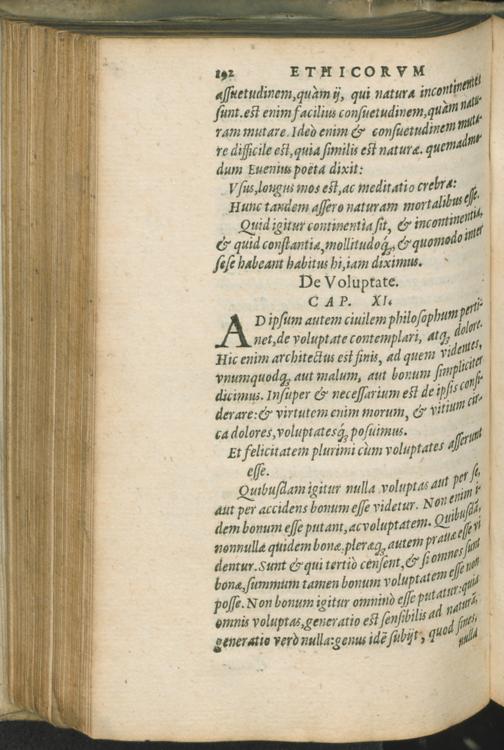 192 ETHICORVM
assuetudinem, quàm ij, qui natura incontinentes
sunt. est enim facilius consuetudinem, quàm natu-
ram mutare. Ideò enim & consuetudinem muta-
re difficile est, quia similis est naturæ. quemadmo-
dum Euenius poëta dixit:
Vsus, longus mos est, ac meditatio crebræ:
Hunc tandem assero naturam mortalibus esse.
Quid igitur continentia sit, & incontinentia,
& quid constantia, mollitudoq́;, & quomodo inter
sese habeant habitus hi, iam diximus.
De Voluptate.
CAP. XI.
AD ipsum autem ciuilem philosophum perti-
net, de voluptate contemplari, atq; dolore.
Hic enim architectus est finis, ad quem videntes,
vnumquodq; aut malum, aut bonum simpliciter
dicimus. Insuper & necessarium est de ipsis consi-
derare: & virtutem enim morum, & vitium cir-
ca dolores, voluptatesq́; posuimus.
Et felicitatem plurimi cùm voluptates asserunt
esse.
Quibusdam igitur nulla voluptas aut per se,
aut per accidens bonum esse videtur. Non enim i-
dem bonum esse putant, ac voluptatem. Quibusdã,
nonnullæ quidem bonæ, pleræq; autem prauæ esse vi
dentur. Sunt & qui tertiò censent, & si omnes sunt
bonæ, summum tamen bonum voluptatem esse non
posse. Non bonum igitur omninò esse putatur: quia
omnis voluptas, generatio est sensibilis ad naturã,
generatio verò nulla: genus idē subijt, quod fines,
nulla